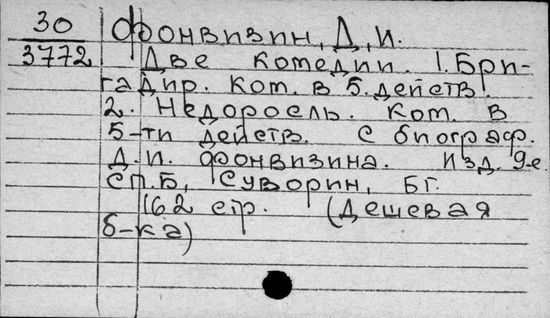 30
3772
Фонвизин, Д. И.
Две комедии. 1. Бри-
гадир. Ком. в 5. действ.
2. Недоросль. Ком. в
5-ти действ. с биограф.
Д. И. Фонвизина. Изд. 9-е.
СП.Б, Суворин, Б г.
162 стр. (Дешевая
б-ка)